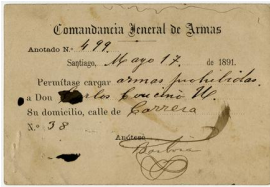 Comandancia Jeneral de Armas
Anotado N.º 499
Santiago, Mayo 17. de 1891.
Permítase cargar armas prohibidas.
a Don Carlos Cousiño U.
Su domicilio, calle de Carrera
N.º 38
Anótese